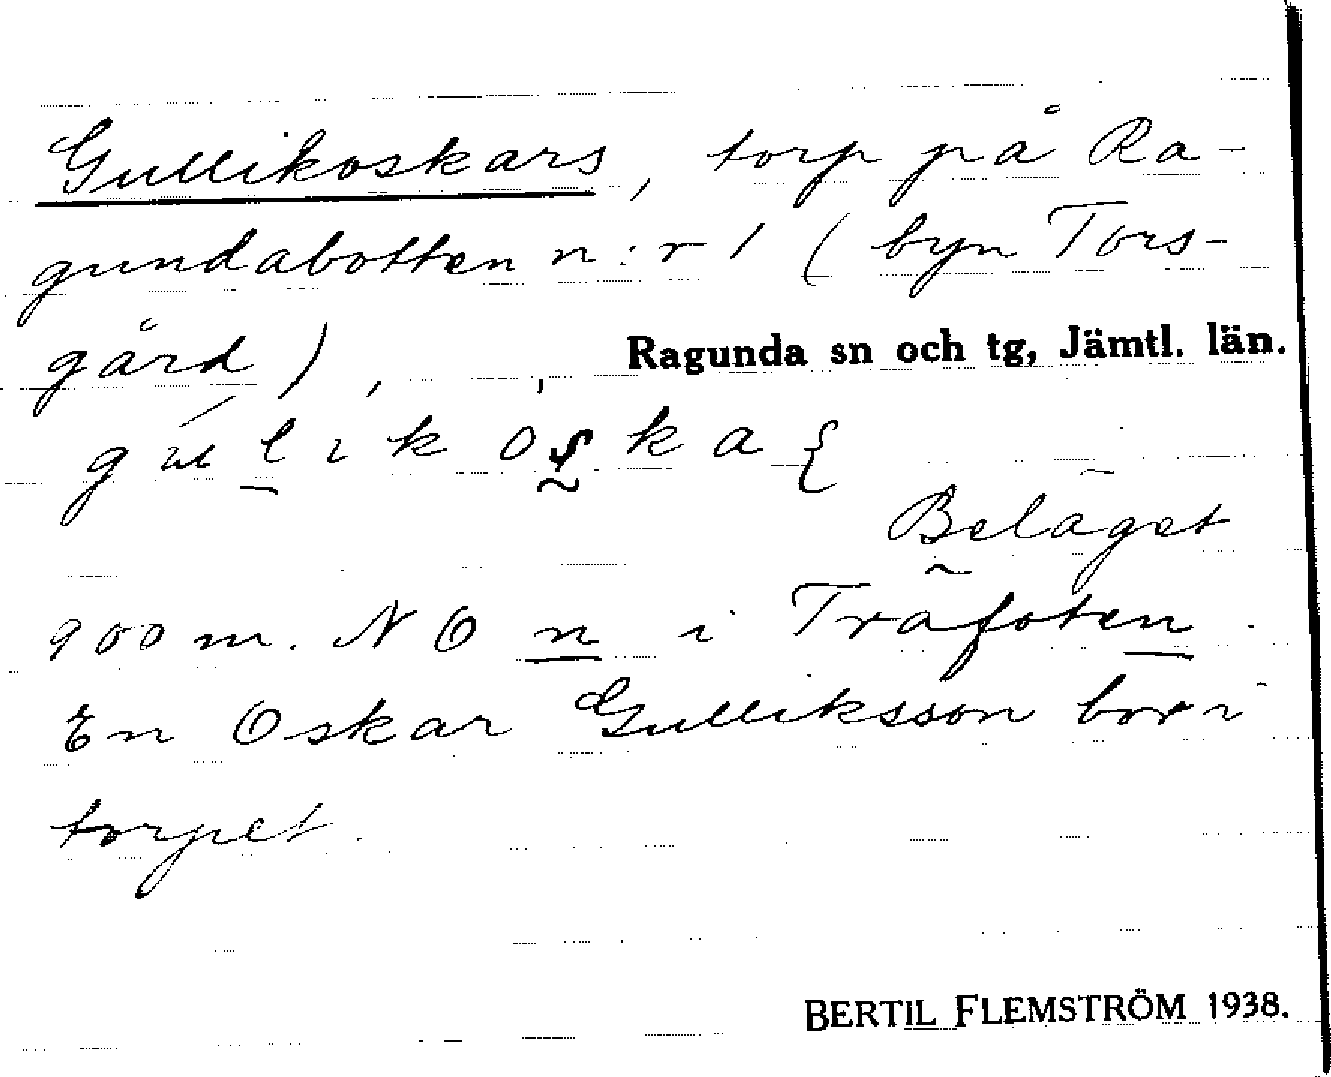 Gullikoskars, torp på Ra-
gundabotten n:r 1 (byn Tors-
gård), Ragunda sn och tg, Jämtl. län.
Beläget
900 m. NO n i Träfoten.
En Oskar Gulliksson bor i
torpet.
BERTIL FLEMSTRÖM 1938.